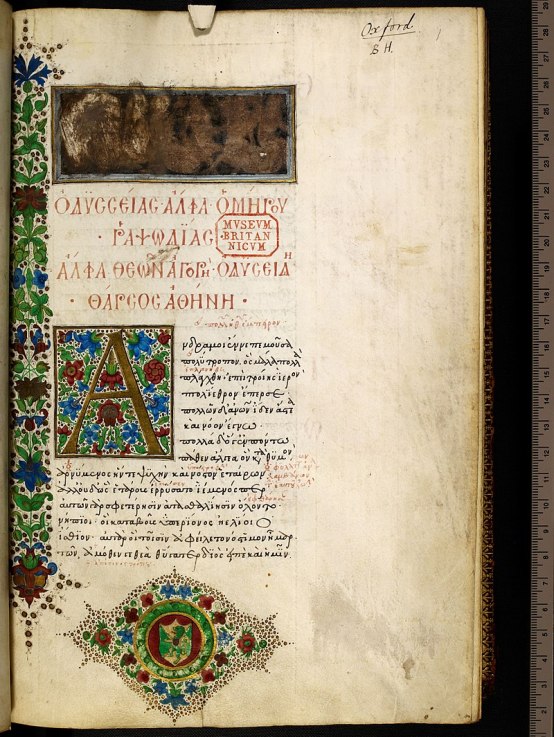 Oxford.
B H.
ὈΔΥΣΣΕΊΑΣ ΑΛΦΑ ὉΜΉΡΟΥ
· ΡΑΨΩΔΊΑΣ ·
MVSEVM
BRITAN
NICVM
ἌΛΦΑ ΘΕΩΝ ΑΓΟΡΗ· ὈΔΥΣΕΙΔΗ
· ΘΆΡΣΟΣ ἈΘΉΝΗ ·
Α
νδρα μοι ἔννεπε μοῦσα
πολύτροπον. ὃς μάλα πολλὰ
πλάγχθη· ἐπεὶ τροίης ἱερὸν
πτολίεθρον ἔπερσε
πολλῶν δ'
καὶ νόον ἔγνω
πολλὰ δ' ὅγ' ἐν πόντω
πάθεν ἄλγεα ὃν κατὰ θυμόν
ἀρνύμενος ἥν τε ψυχὴν καὶ νόστον ἑταίρων
ἀλλ' οὐδ' ὣς ἑτάρους ἐρρύσατο ἱέμενός περ
αὐτῶν γὰρ σφετέρησιν ἀτασθαλίησιν ὄλοντο
νήπιοι· οἳ κατὰ βοῦς ὑπερίονος ἠελίοιο
ἤσθιον· αὐτὰρ ὁ τοῖσιν ἀφείλετο νόστιμον ἦμαρ·
τῶν ἁμόθεν γε θεὰ θύγατερ διὸς εἰπὲ καὶ ἡμῖν·